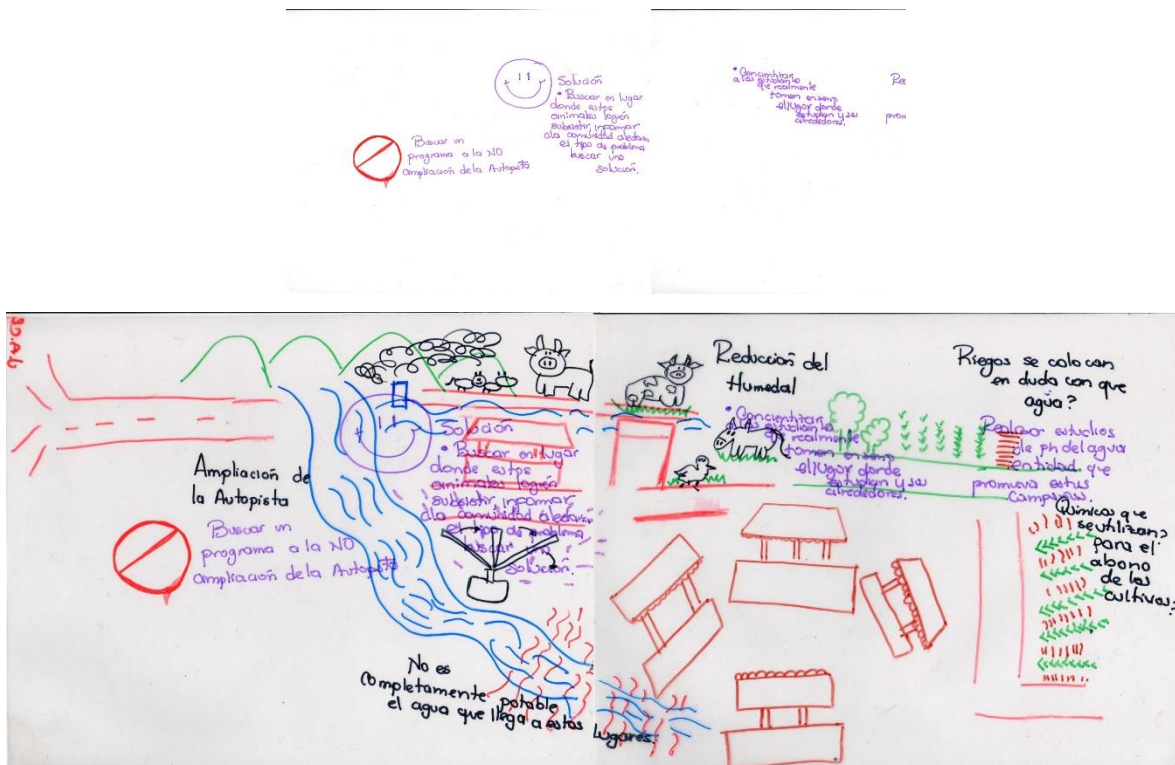 Solución
• Buscar un lugar
donde estos
animales logren
subsistir, informar
a la comunidad aledaña
el tipo de problema
buscar una
solución.
Buscar un
programa a la NO
ampliación de la Autopista
• Concientizar
a los estudiantes
que realmente
tomen en serio
el lugar donde
estudian y sus
alrededores.
Re
prom
Ampliación de
la Autopista
Buscar un
programa a la NO
ampliación de la Autopista
Solución
• Buscar un lugar
donde estos
animales logren
subsistir, informar
a la comunidad aledaña
el tipo de problema
buscar una
solución.
No es
completamente potable
el agua que llega a estos lugares.
Reducción del
Humedal
• Concientizar
a los estudiantes
que realmente
tomen en serio
el lugar donde
estudian y sus
alrededores.
Riegos se colocan
en duda con que
agua?
Realizar estudios
de ph del agua
entidad que
promueva estas
Campañas.
Quimicos que
se utilizan?
para el
abono
de los
cultivos?